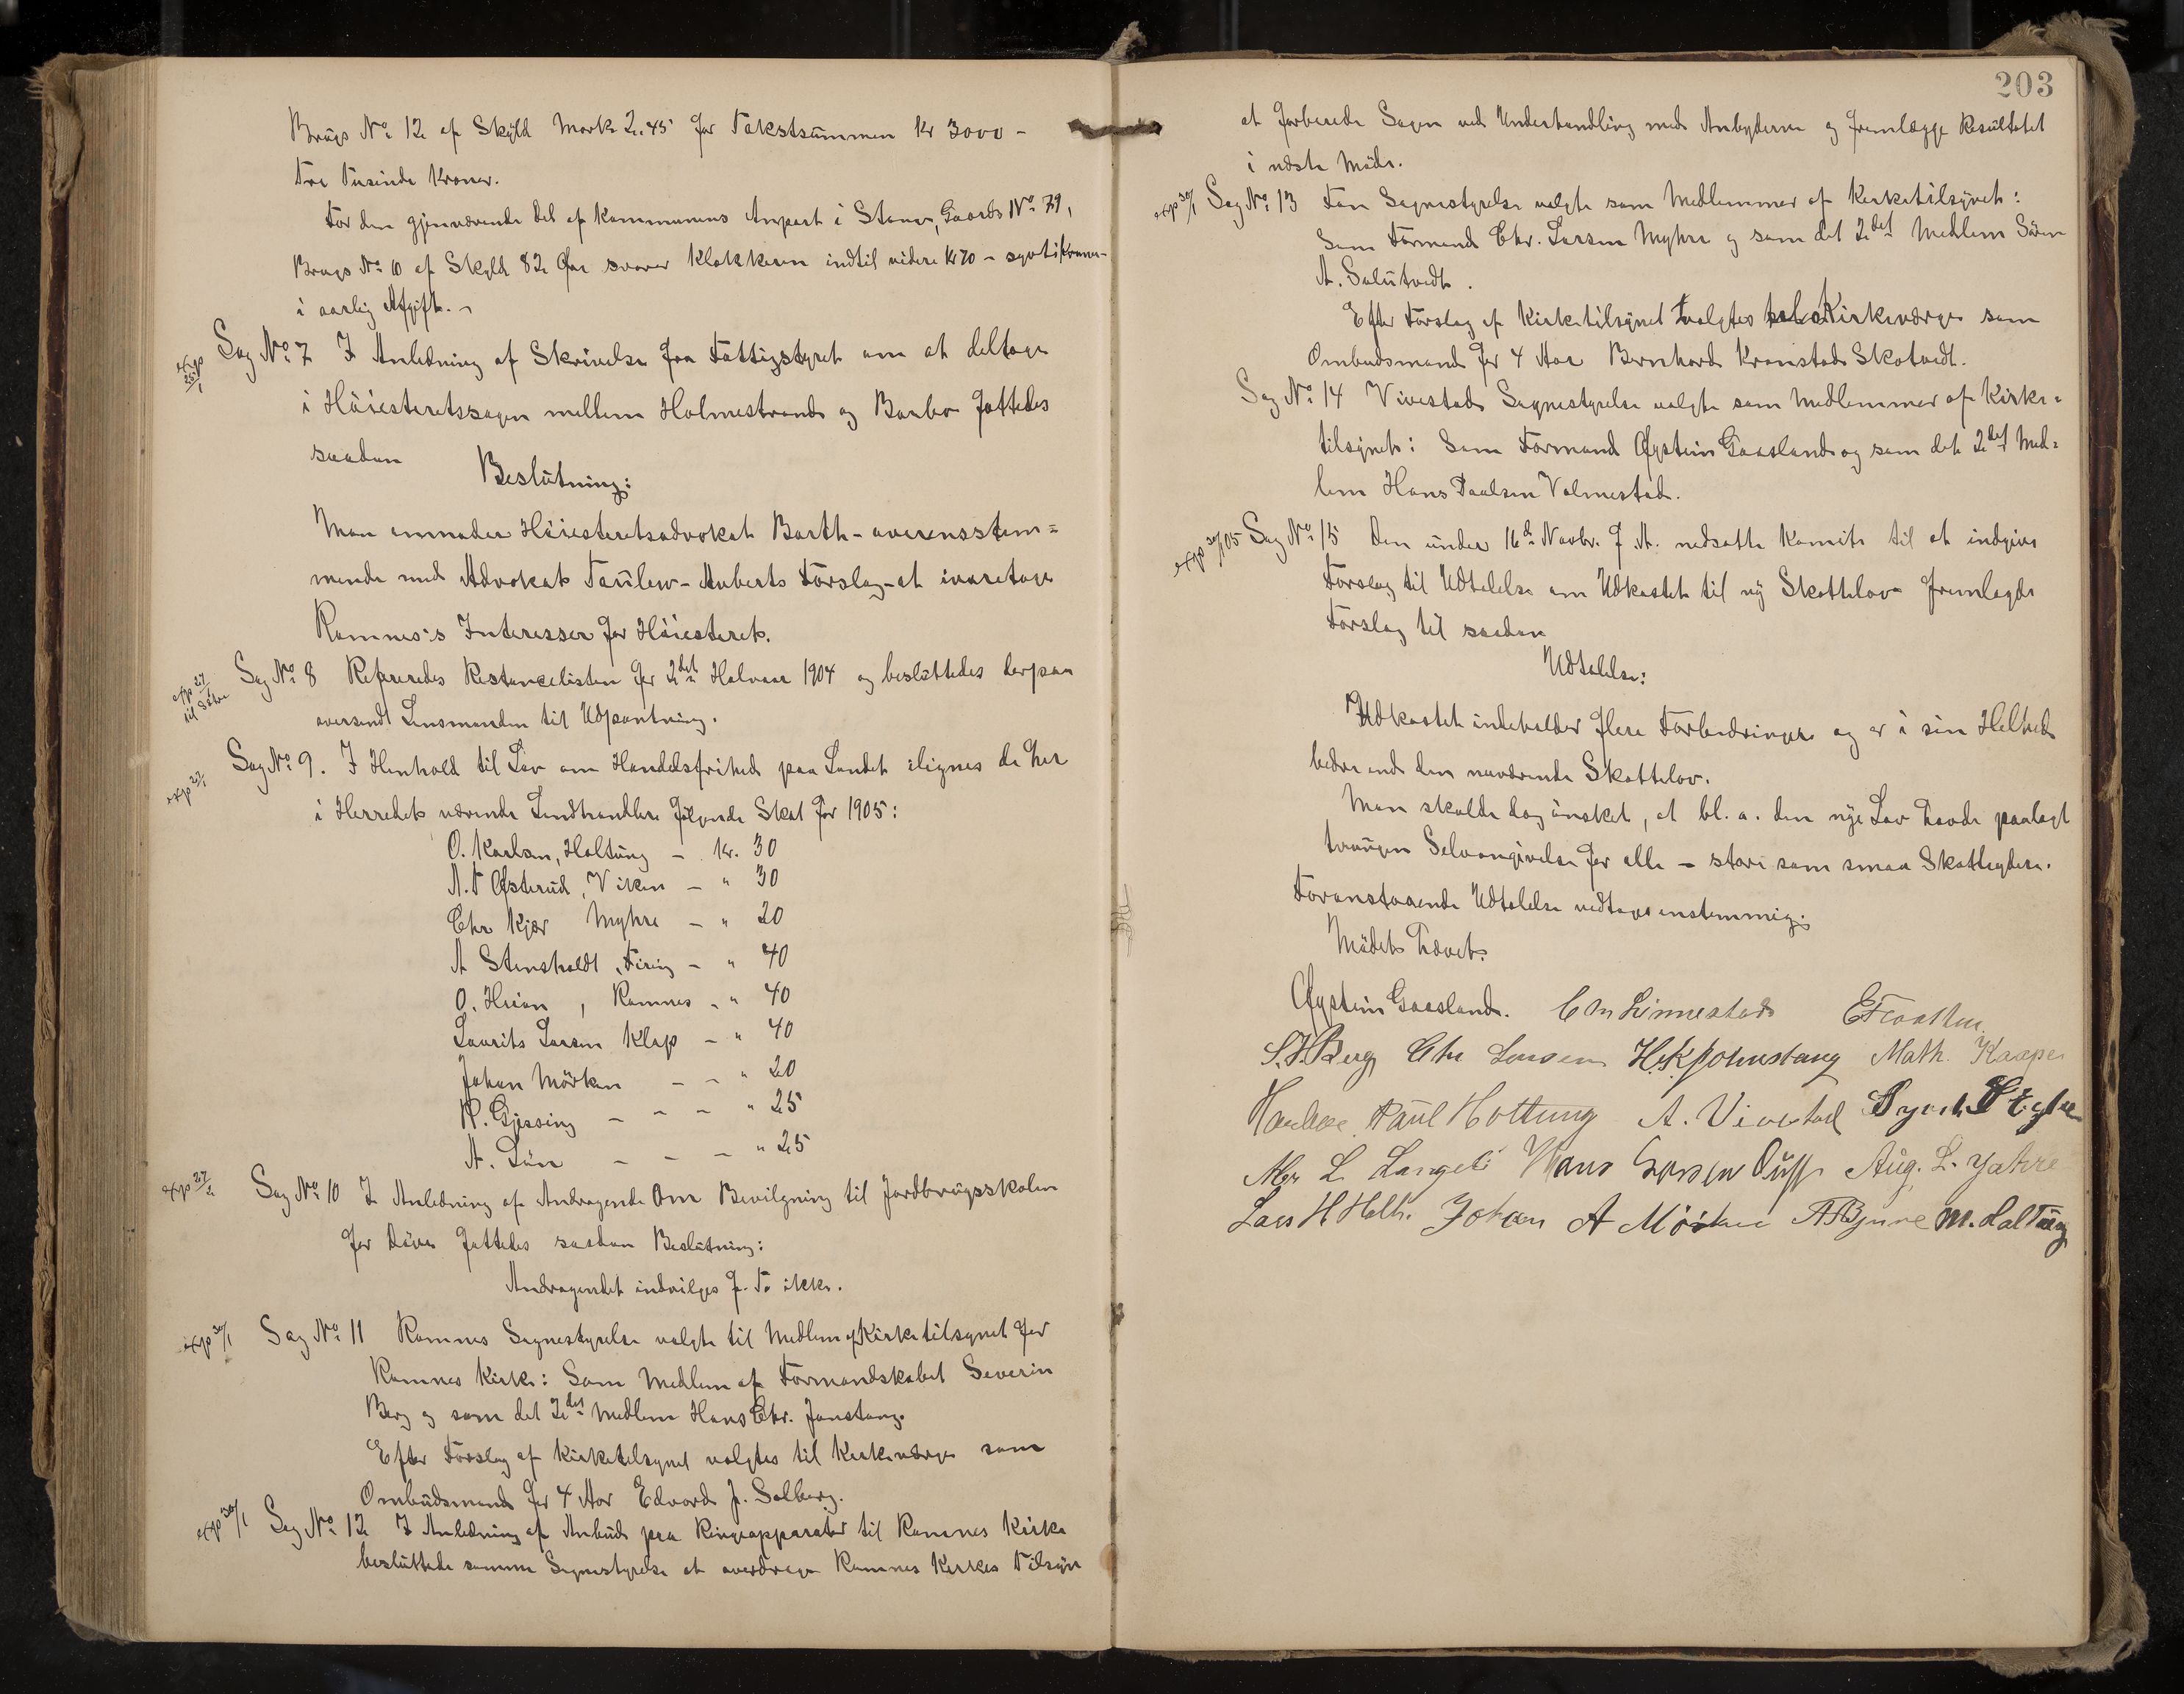 Brugs No. 12 af Skyld Mark 2.45 for Takstsummen Kr 3000 -
Tre Tusinde Kroner.
For den gjenværende del af Kommunens Anpart i Stener, Gaards No. 79,
Brugs No. 10 af Skyld 82 Øre svarer Klokkeren indtil videre Kr 70 - sytti Kroner -
i aarlig Afgift. -
exp 25/1
Sag No. 7 I Anledning af Skrivelse fra Fattigstyret om at deltage
i Höiesteretssagen mellem Holmestrand og Barbo fattedes
saadan
Beslutning:
Man anmoder Höiesteretsadvokat Barth - overensstem=
mende med Advokat Faulew-Auberts Forslag - at ivaretage
Ramnes's Interesser for Höiesteret.
exp 27/1 til
Sag No. 8 Refereredes Restancelisten for 2det Halvaar 1904 og besluttedes derpaa
oversendt Lensmanden til Udpantning.
exp 27/1
Sag No. 9. I Henhold til Lov om Handelsfrihed paa Landet ilignes de her
i Herredet værende Landhandlere fölgende Skat for 1905:
O. Karlsen, Holtung - Kr. 30
A. F Østerud, Viken - " 30
Chr Kjær Myhre - " 20
A Stensholdt, Firing - " 40
O. Heian, Ramnes - " 40
Laurits Larsen Klop - " 40
Johan Mörken - - " 20
R. Gjessing - - - " 25
A. Lun - - - " 25
exp 27/2
Sag No. 10 I Anledning af Andragende Om Bevilgning til Jordbrugsskolen
for Döve fattedes saadan Beslutning:
Andragendet indvilges f. T. ikke.
exp 30/1
Sag No. 11 Ramnes Sognestyrelse valgte til Medlem af Kirketilsynet for
Ramnes Kirke: Som Medlem af Formandskabet Severin
Berg og som det 2det Medlem Hans Chr. Jonstang.
Efter Forslag af Kirketilsynet valgtes til Kirkeværge som
Ombudsmand for 4 Aar Edvard J. Solberg.
exp 30/1
Sag No. 12 I Anledning af Anbud paa Ringeapparater til Ramnes Kirke
besluttede samme Sognestyrelse at overdrage Ramnes Kirkes Tilsyn
203
at forberede Sagen ved Underhandling med Anbyderne og fremlægge Resultatet
i næste Möde.
exp 30/1
Sag No. 13 Fon Sognestyrelse valgte som Medlemmer af Kirketilsynet:
Som Formand Chr. Larsen Myhre og som det 2det Medlem Sören
A. Solutvedt.
Efter Forslag af Kirketilsynet valgtes Kirkeværge som
Ombudsmand for 4 Aar Bernhard Kronstad Skotvedt.
Sag No. 14 Vivestad Sognestyrelse valgte som Medlemmer af Kirke=
tilsynet: Som Formand Øystein Gaasland og som det 2det Med=
lem Hans Paulsen Valmestad.
exp 30/1 05
Sag No. 15 Den under 16de Novbr. f. A. nedsatte Komite til at indgive
Forslag til Udtalelse om Udkastet til ny Skattelov fremlagde
Forslag til saadan
Udtalelse:
Udkastet indeholder flere Forbedringer og er i sin Helhed
bedre end den nuværende Skattelov.
Man skulde dog önsket, at bl. a. den nye Lov havde paalagt
tvungen Selvangivelse for alle - store som smaa Skatteydere.
Foranstaaende Udtalelse vedtages enstemmig.
Mödet hævet.
Øystein Gaasland. C M Linnestad
S. J. Berg Chr Larsen H. K Johnstang Math. Kaape
Paul Holtung A. Vivestad
L. Langeli Hans Aug. L. Yahre
Lars H Holt. Johan A Mörken A Bjune M. Haltung